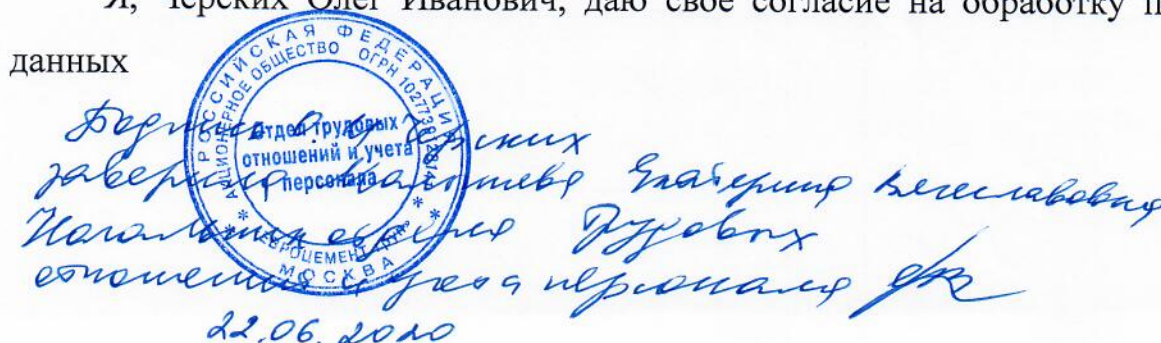 Я, Черских Олег Иванович, даю свое согласие на обработку п
данных
РОССИЙСКАЯ ФЕДЕРАЦИЯ
АКЦИОНЕРНОЕ ОБЩЕСТВО ОГРН
МОСКВА
Отдел трудовых
отношений и учета
персонала
Подпись О. И. Черских
заверила Екатерина Вячеславовна
Начальник отдела трудовых
отношений и учета персонала
22.06.2020